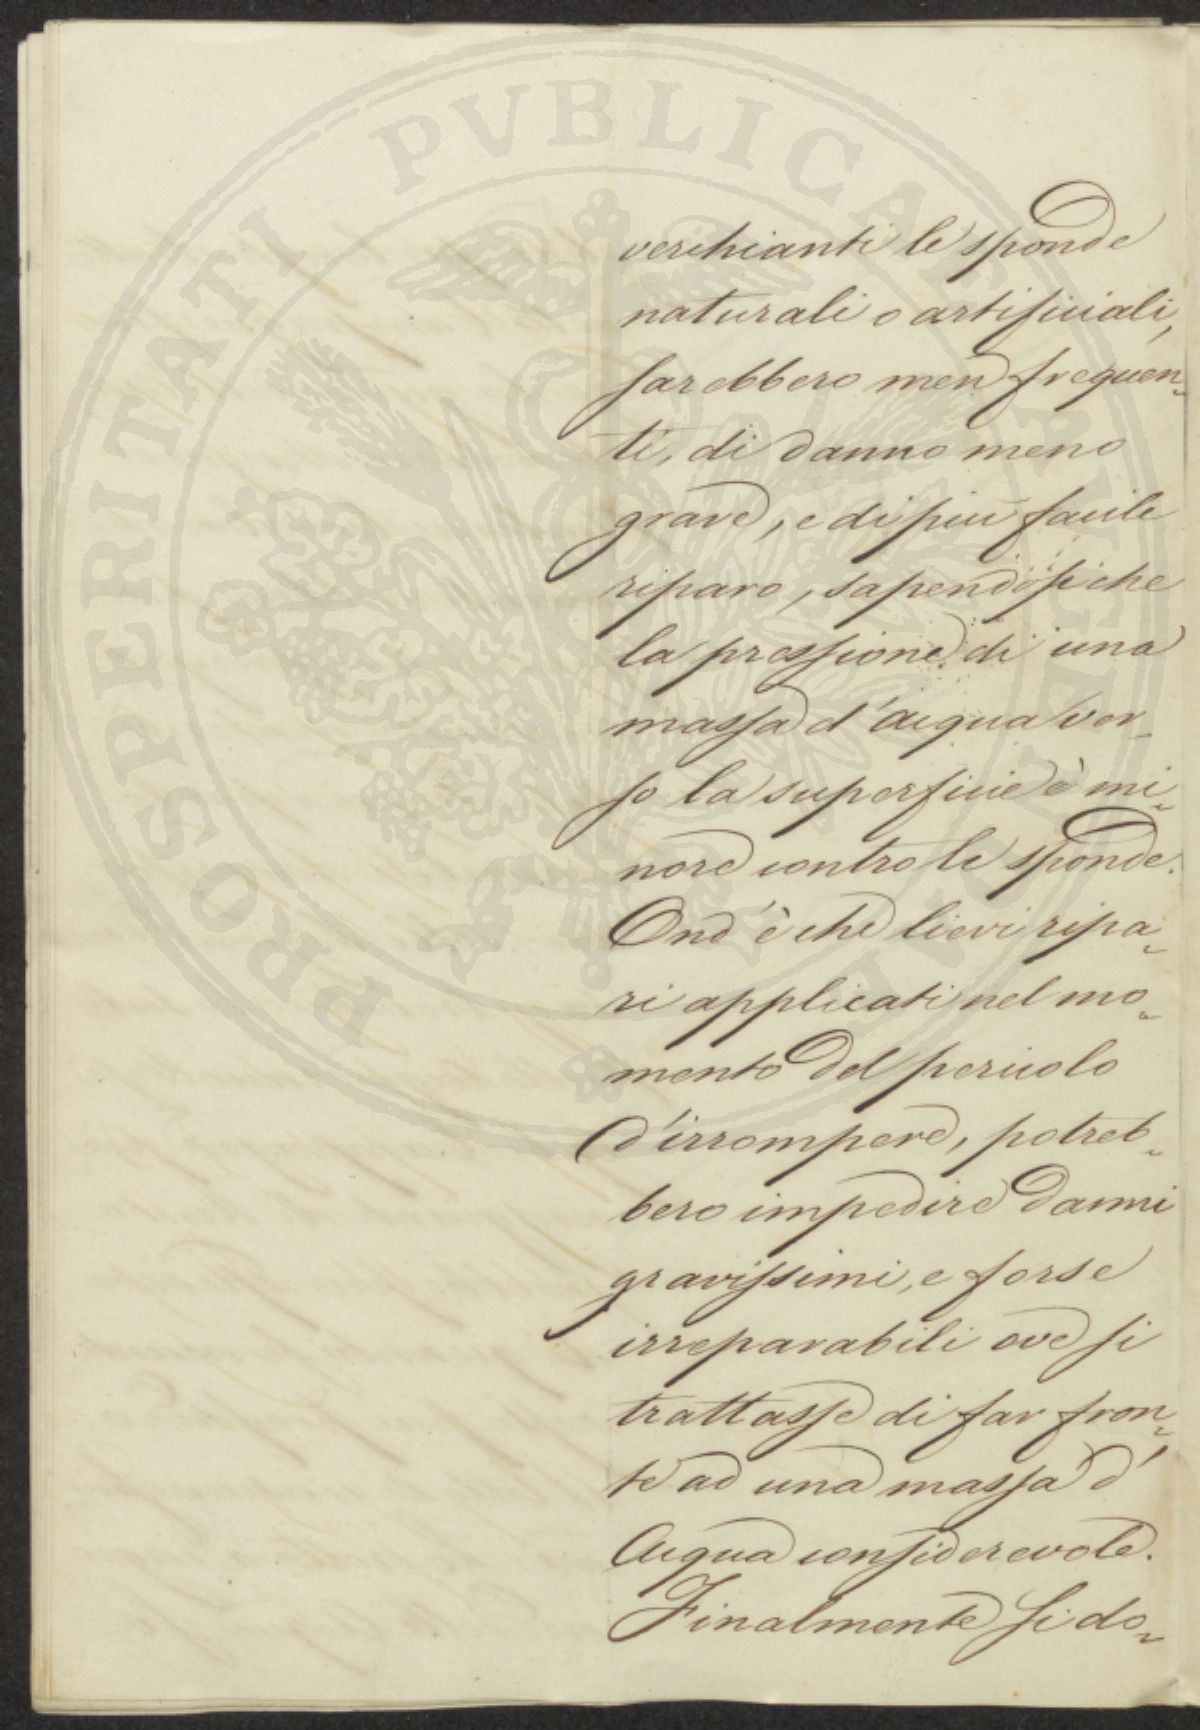 PROSPERITATI PVBLICAE
verchianti le sponde
naturali o artificiali,
sarebbero men frequen-
ti, di danno meno
grave, e di più facile
riparo, sapendosi che
la pressione di una
massa d'acqua ver-
so la superficie è mi-
nore contro le sponde.
Ond'è che lievi ripa-
ri applicati nel mo-
mento del pericolo
d'irrompere, potreb-
bero impedire danni
gravissimi, e forse
irreparabili ove si
trattasse di far fron-
te ad una massa d'
Acqua considerevole.
Finalmente si do-